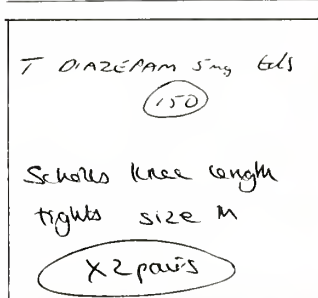 T DIAZEPAM 5mg tds
150
Scholls knee length
tights size M
X2 pairs